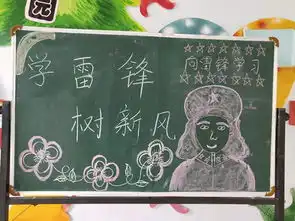 元
向雷锋学习
学雷锋
树新风